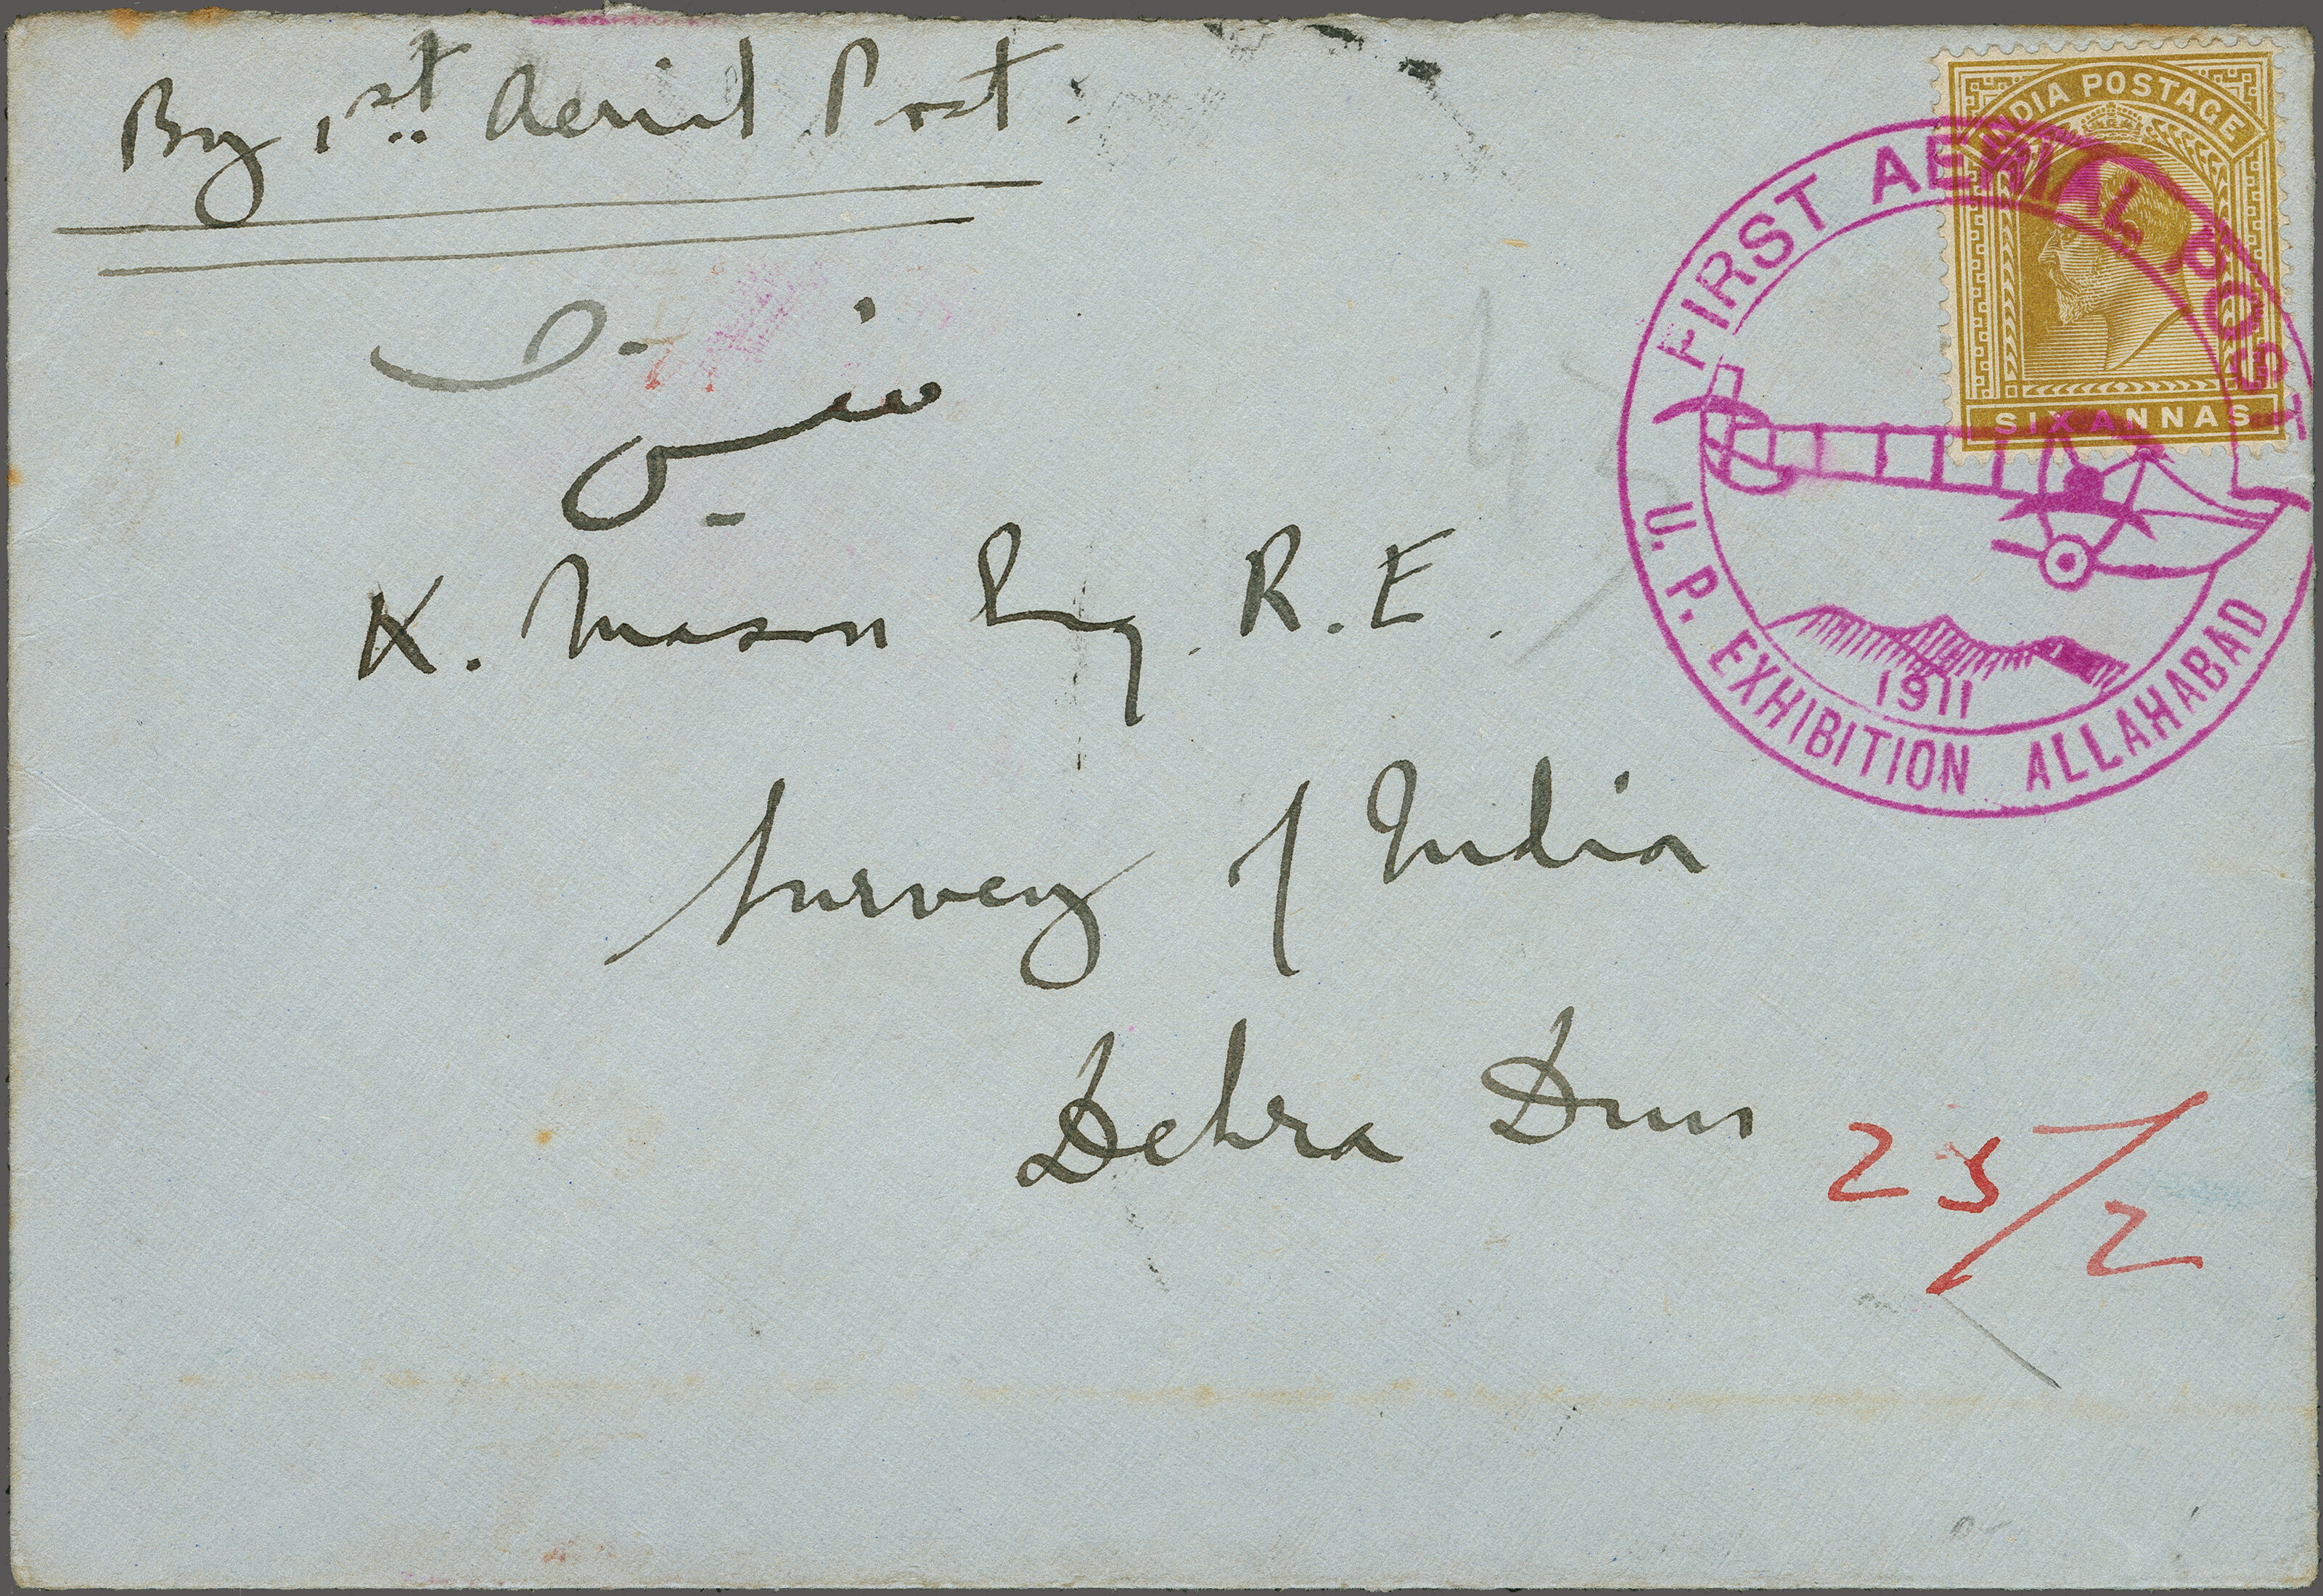 By 1st Aerial Post.
INDIA POSTAGE
SIX ANNAS
FIRST AERIAL POST
1911
U. P. EXHIBITION ALLAHABAD
K. Mason Esq. R. E.
Survey of India
Dehra Dun
25/2